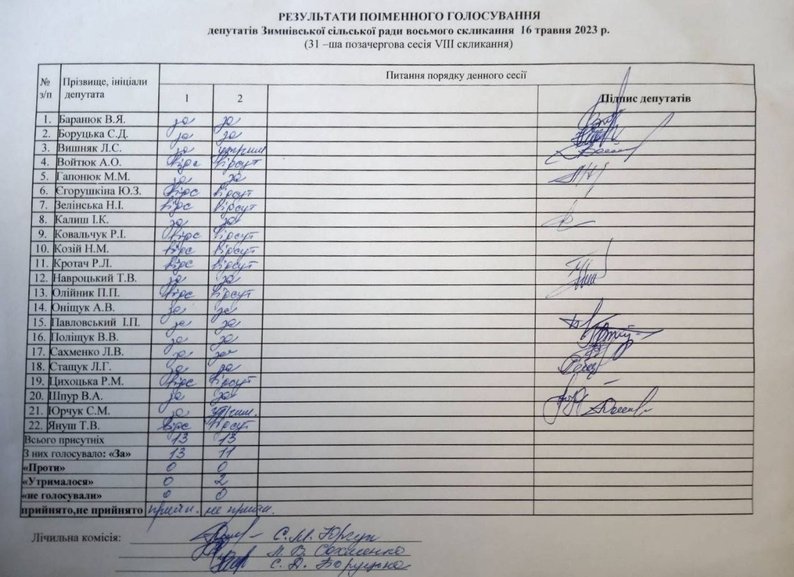 РЕЗУЛЬТАТИ ПОІМЕННОГО ГОЛОСУВАННЯ
депутатів Зимнівської сільської ради восьмого скликання 16 травня 2023 р.
(31 –ша позачергова сесія VIII скликання)
№ з/п Прізвище, ініціали депутата Питання порядку денного сесії
1 2 Підпис депутатів
1. Баранюк В.Я. за за
2. Боруцька С.Д. за за
3. Вишняк Л.С. за утрим
4. Войтюк А.О. відс відсут
5. Гапонюк М.М. за за
6. Єгорушкіна Ю.З. відс відсут
7. Зелінська Н.І. відс відсут
8. Калиш І.К. за за
9. Ковальчук Р.І. відс відсут
10. Козій Н.М. відс відсут
11. Кротач Р.Л. відс відсут
12. Навроцький Т.В. за за
13. Олійник П.П. відс відсут
14. Оніщук А.В. за за
15. Павловський І.П. за за
16. Поліщук В.В. за за
17. Сахменко Л.В. за за
18. Стащук Л.Г. за за
19. Цихоцька Р.М. відс відсут
20. Шпур В.А. за за
21. Юрчук С.М. за утрим.
22. Януш Т.В. відс відсут
Всього присутніх 13 13
З них голосувало: «За» 13 11
«Проти» 0 0
«Утрималося» 0 2
«не голосували» 0 0
прийнято,не прийнято прийн. не прийн.
Лічильна комісія: С.М. Юрчук
Л.В. Сахменко
С.Д. Боруцька